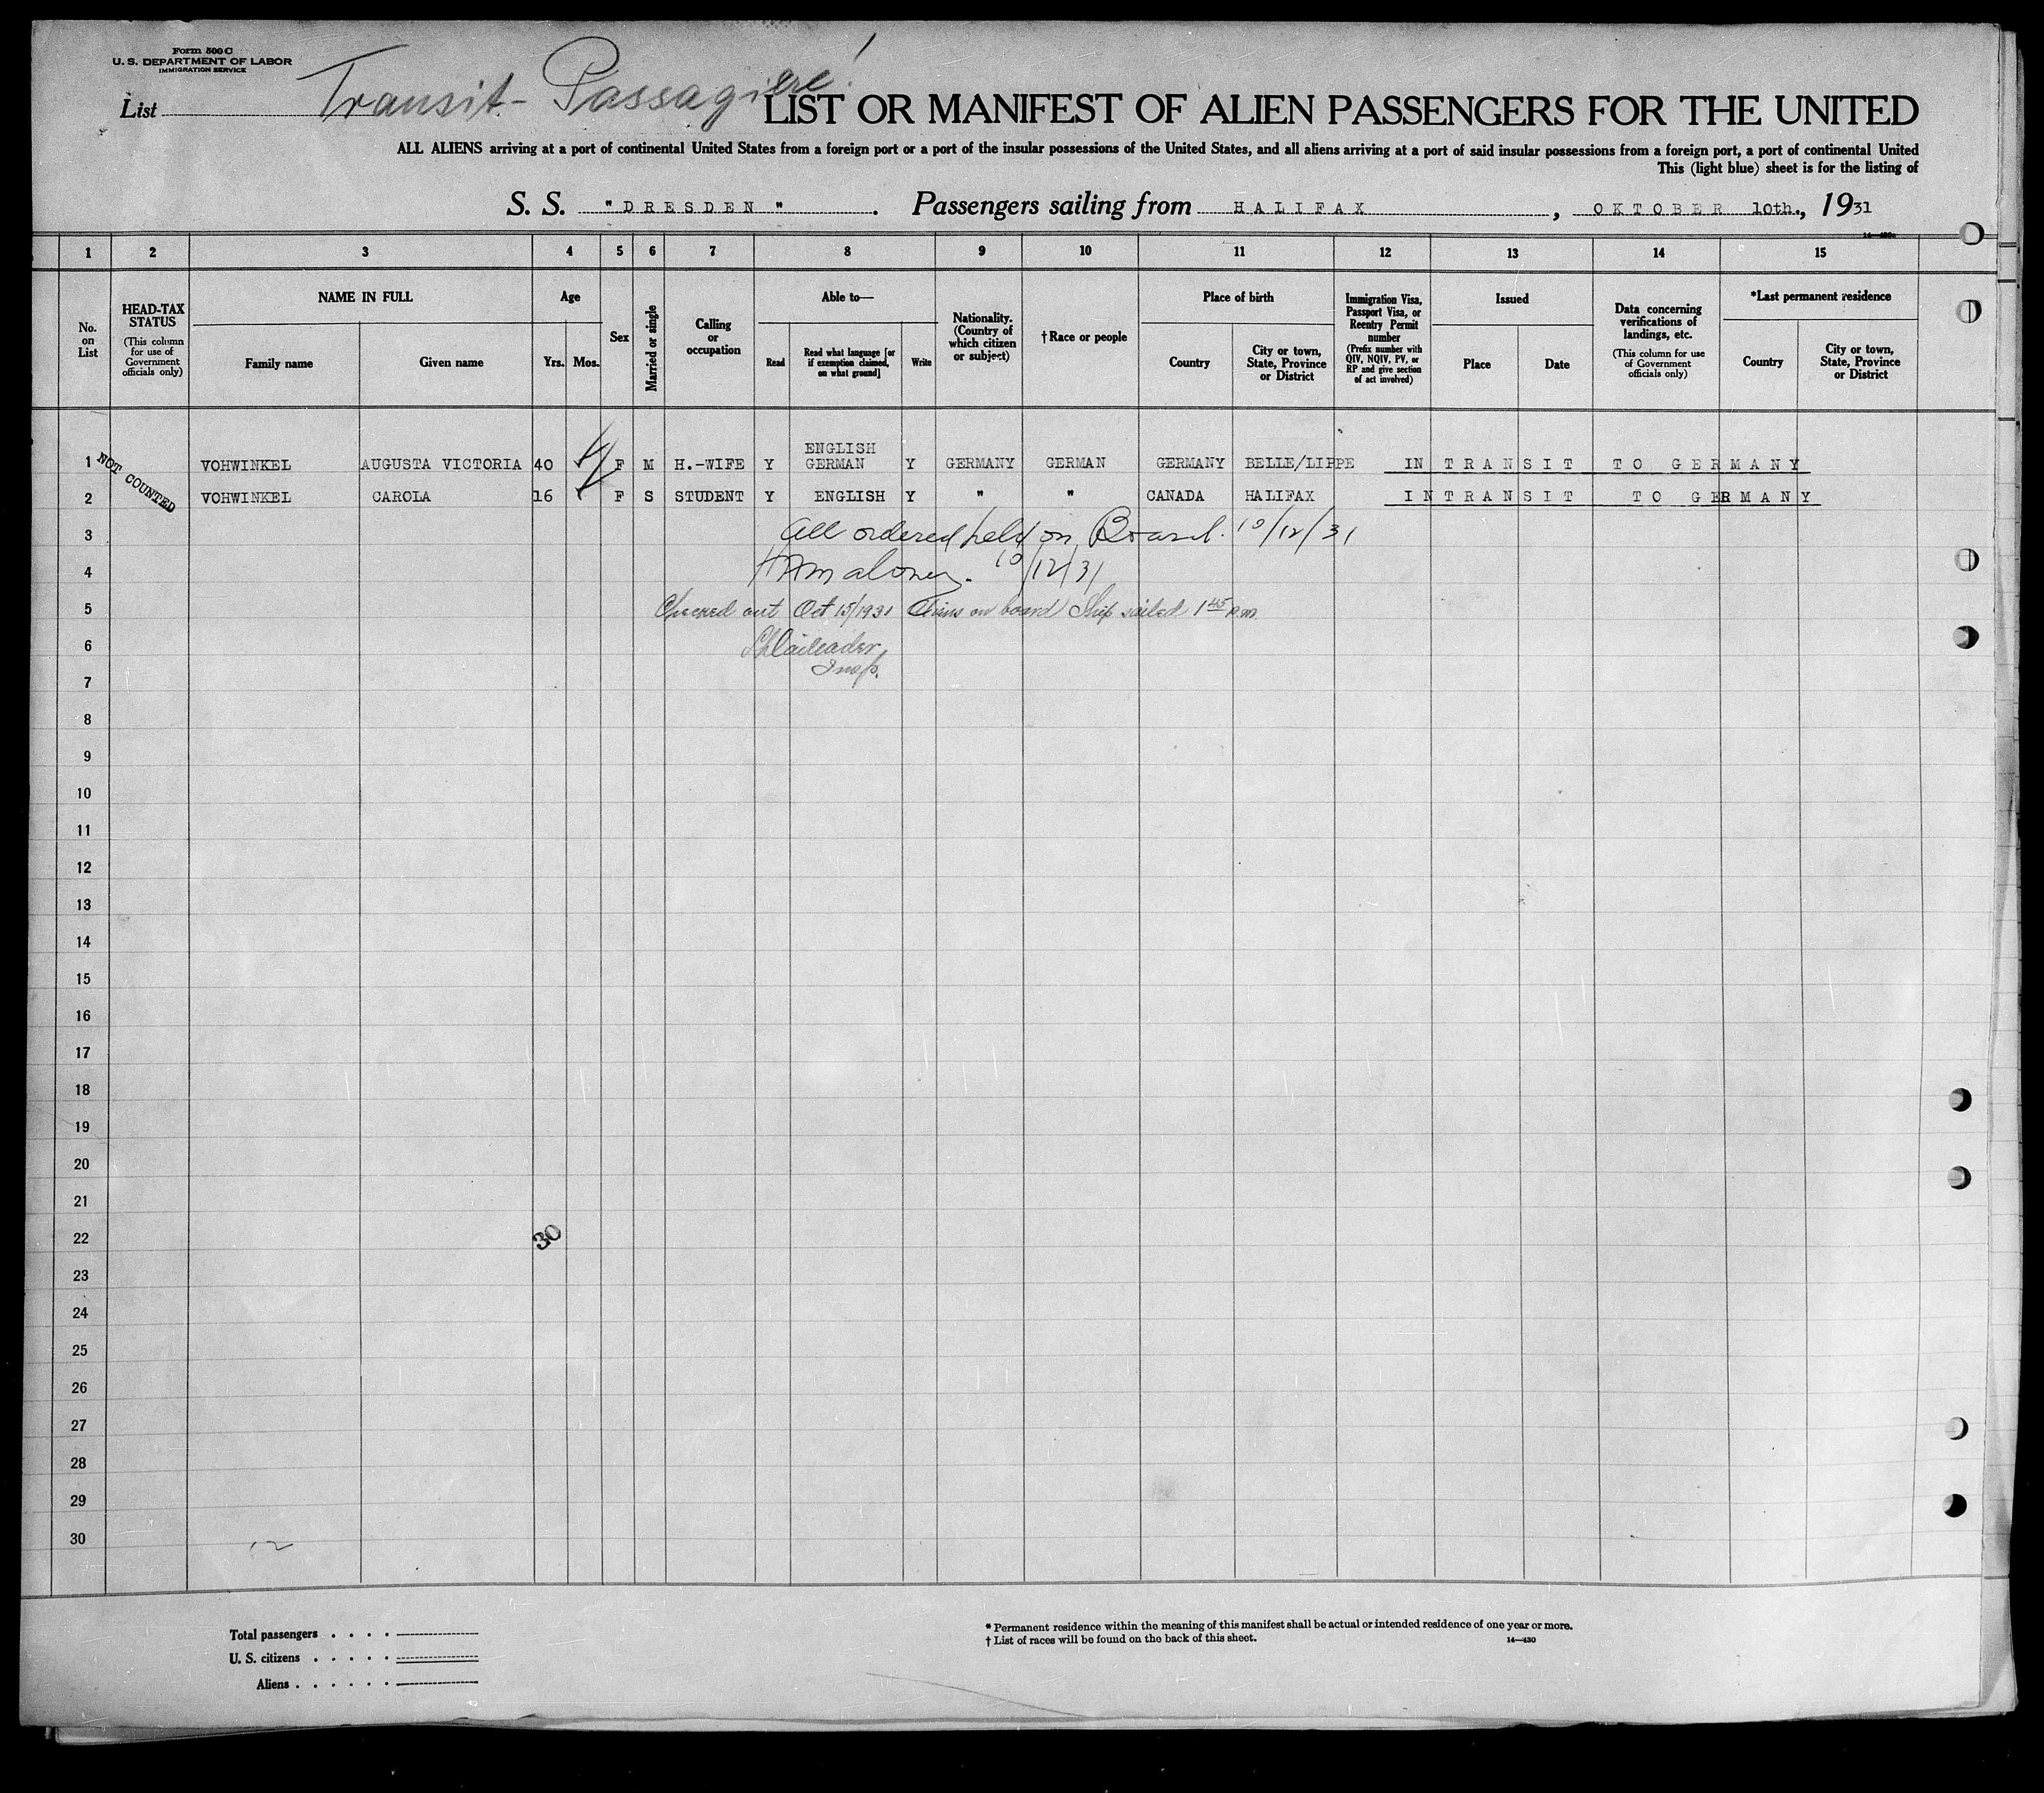 Form 500 C
U. S. DEPARTMENT OF LABOR
IMMIGRATION SERVICE
List
Transit- Passagiere!
LIST OR MANIFEST OF ALIEN PASSENGERS FOR THE UNITED
ALL ALIENS arriving at a port of continental United States from a foreign port or a port of the insular possessions of the United States, and all aliens arriving at a port of said insular possessions from a foreign port, a port of continental United
This (light blue) sheet is for the listing of
S. S. "DRESDEN" . Passengers sailing from HALIFAX , OKTOBER 10th., 1931
1 2 3 4 5 6 7 8 9 10 11 12 13 14 15
No. on List
HEAD-TAX STATUS
(This column for use of Government officials only)
NAME IN FULL
Family name
Given name
Age
Yrs.
Mos.
Sex
Married or single
Calling or occupation
Able to—
Read
Read what language [or if exemption claimed, on what ground]
Write
Nationality. (Country of which citizen or subject)
† Race or people
Place of birth
Country
City or town, State, Province or District
Immigration Visa, Passport Visa, or Reentry Permit number
(Prefix number with QIV, NQIV, PV, or RP and give section of act involved)
Issued
Place
Date
Data concerning verifications of landings, etc.
(This column for use of Government officials only)
*Last permanent residence
Country
City or town, State, Province or District
NOT COUNTED
ENGLISH
1 VOHWINKEL AUGUSTA VICTORIA 40 F M H.-WIFE Y GERMAN Y GERMANY GERMAN GERMANY BELLE/LIPPE IN TRANSIT TO GERMANY
2 VOHWINKEL CAROLA 16 F S STUDENT Y ENGLISH Y " " CANADA HALIFAX IN TRANSIT TO GERMANY
3 All ordered held on Board. 10/12/31
4 Maloney. 10/12/31
5 Checked out Oct 15/1931 Aliens on board Ship sailed 1 45 P.M.
6
Insp.
7
8
9
10
11
12
13
14
15
16
17
18
19
20
21
22
30
23
24
25
26
27
28
29
30
Total passengers . . . .
U. S. citizens . . . . .
Aliens . . . . . .
* Permanent residence within the meaning of this manifest shall be actual or intended residence of one year or more.
† List of races will be found on the back of this sheet.
14—430